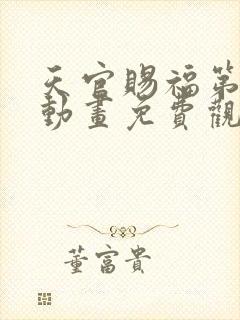 天官賜福第
動畫免費觀
董富貴